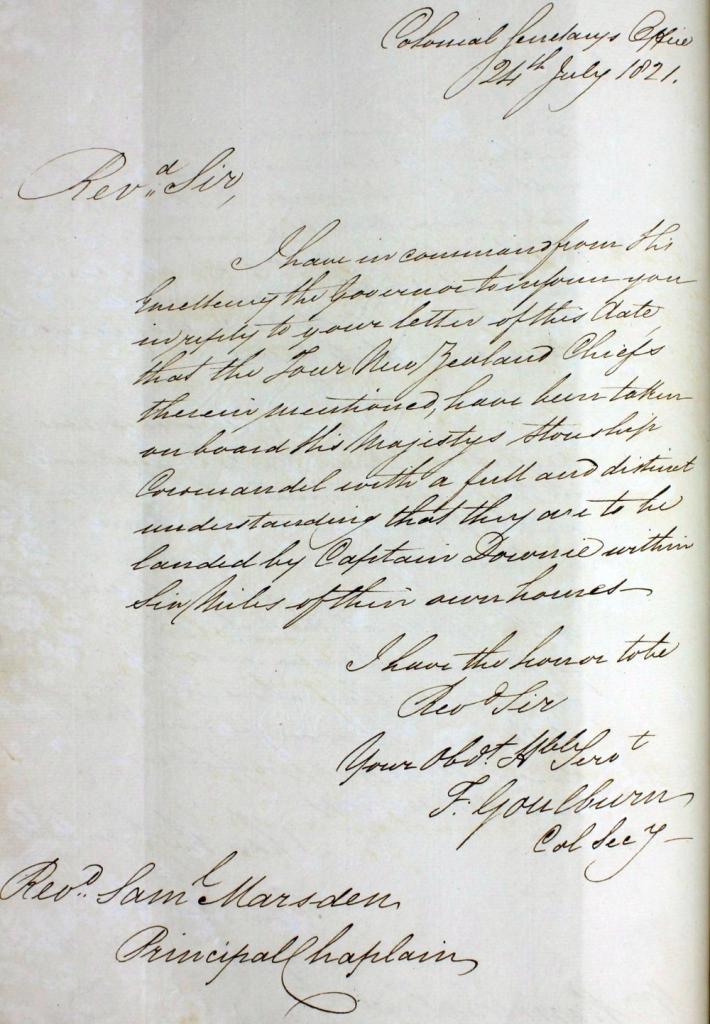 Colonial Secretarys Office
24th July 1821.
Revd. Sir,
I have in command from His
Excellency the Governor to inform you
in reply to your letter of this date,
that the Four New Zealand Chiefs
therein mentioned, have been taken
on board His Majestys Storeship
Coromandel with a full and distinct
understanding that they are to be
landed by Captain Downie within
Six Miles of their own homes—
I have the honor to be
Revd Sir
Your Obdt. Hble Servt
F. Goulburn
Col Secy—
Revd. Saml Marsden
Principal Chaplain